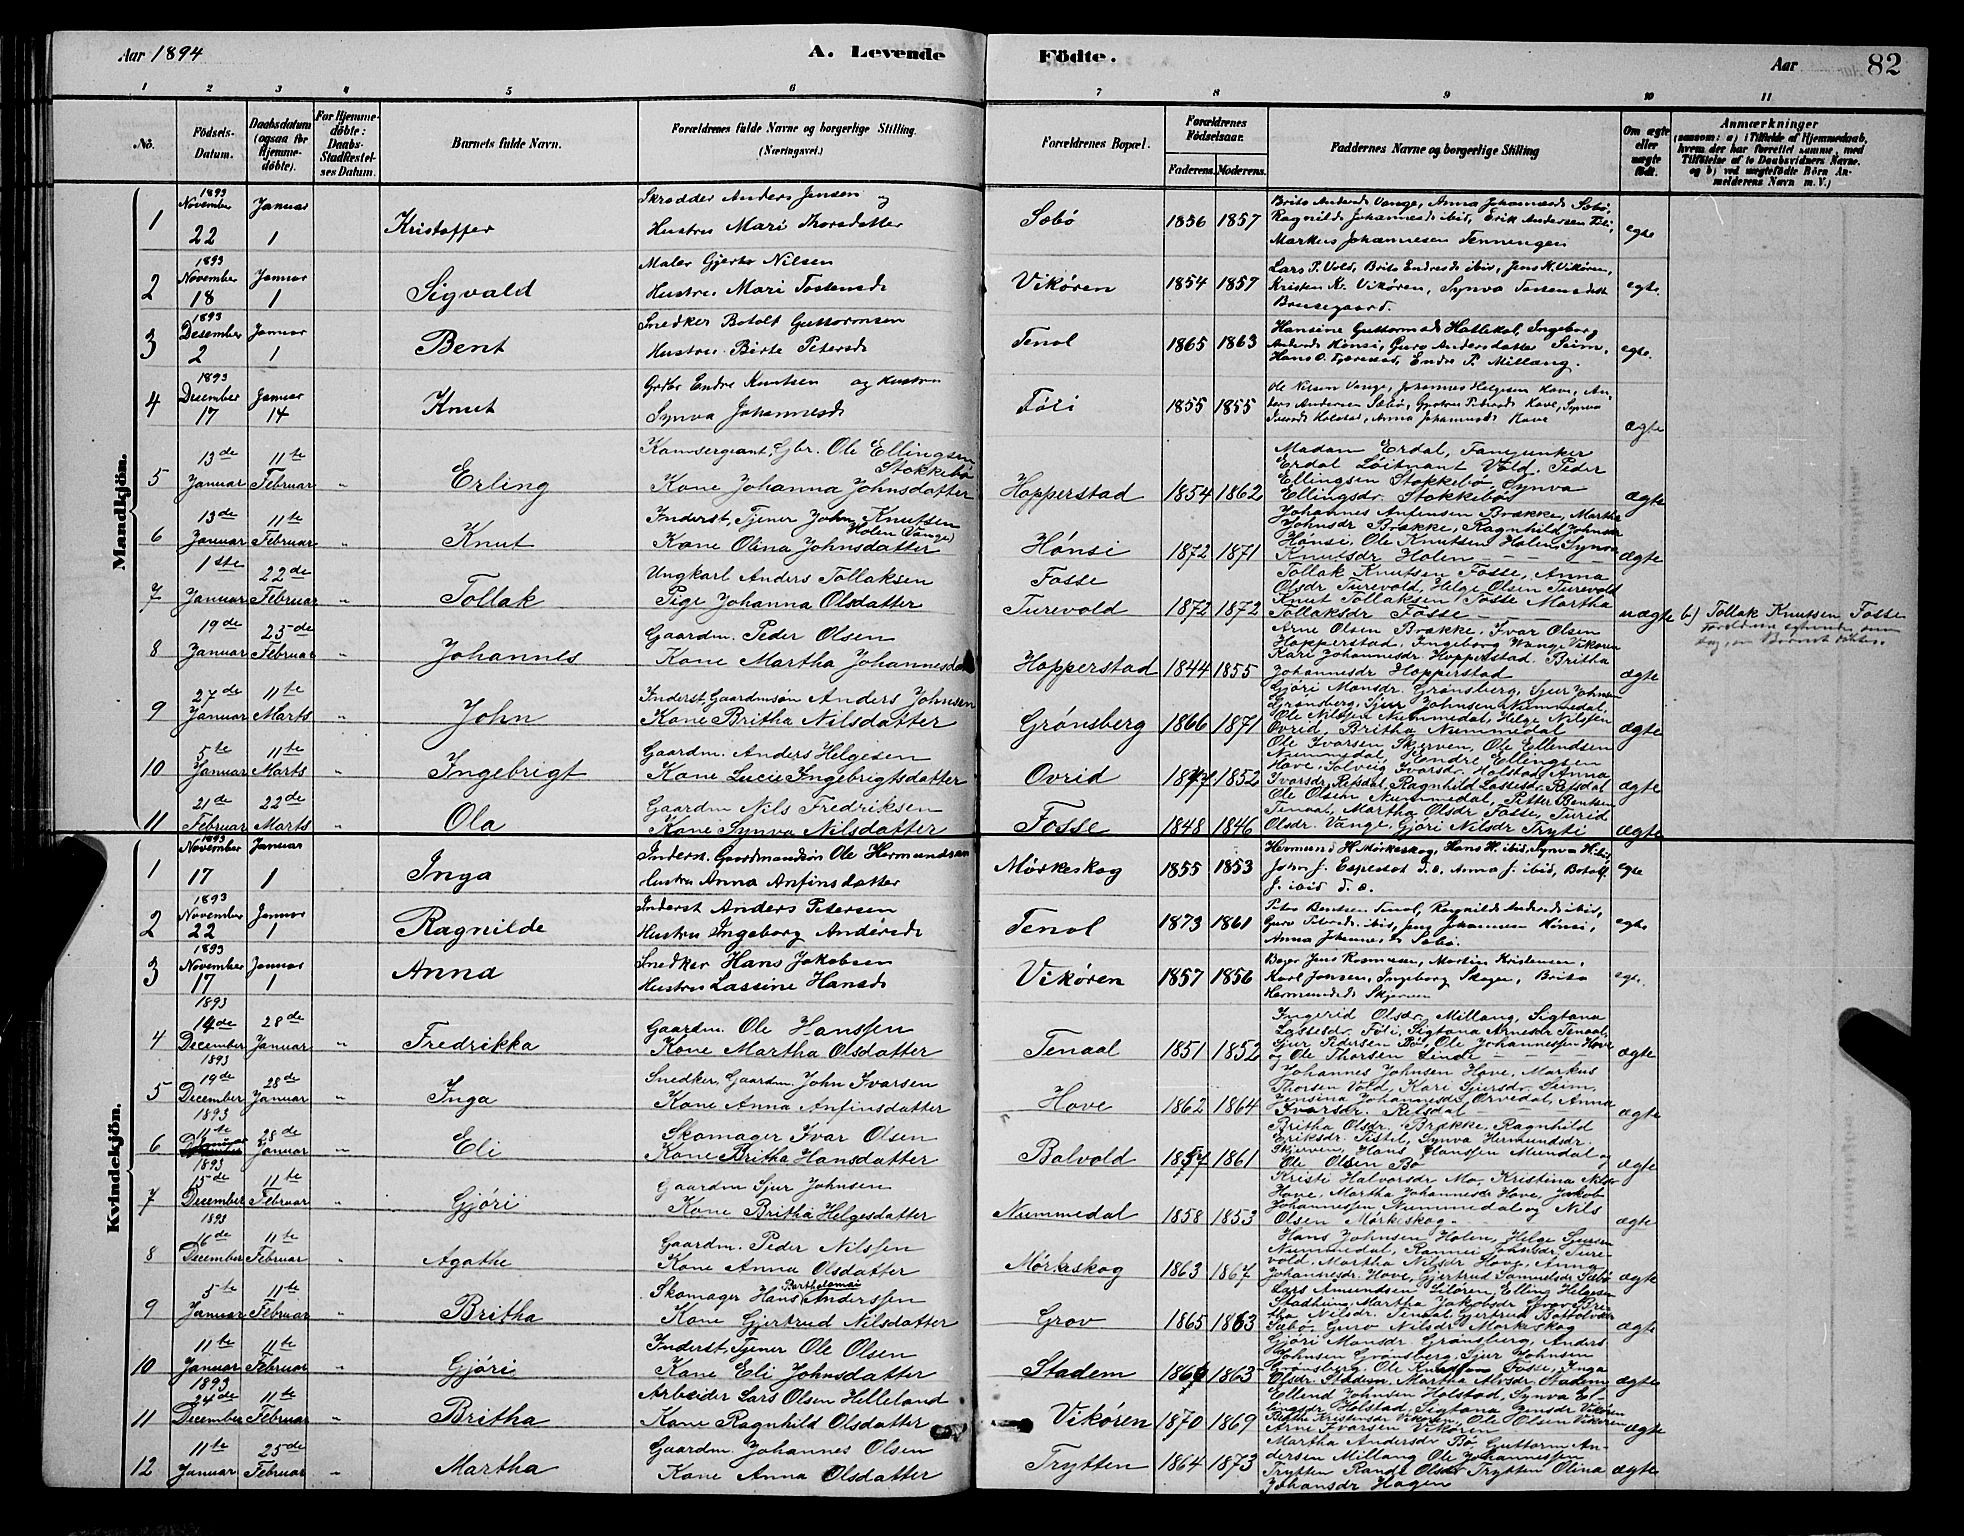 Aar 1894
A. Levende
Födte.
Aar
82
1 2 3 4 5 6 7 8 9 10 11
No.
Födsels-Datum.
Daabsdatum (ogsaa for Hjemmedöbte).
For Hjemmedöbte: Daabs-Stadfestelses Datum.
Barnets fulde Navn.
Forældrenes fulde Navne og borgerlige Stilling. (Næringsvei.)
Forældrenes Bopæl.
Forældrenes Födselsaar.
Faderens. Moderens.
Faddernes Navne og borgerlige Stilling
Om ægte eller uægte födt.
Anmærkninger
(saasom: a) i Tilfælde af Hjemmedaab, hvem der har forrettet samme, med Tilföielse af to Daabsvidners Navne. og b) ved uægtefödte Börn Anmelderens Navn m. V.)
Mandkjön.
1 1893 November 22 Januar 1 Kristoffer Skrædder Anders Jensen og Hustru Mari Thoresdatter Sæbö 1856 1857 Markus Johannesen Tenningen egte
2 1893 November 18 Januar 1 Sigvald Maler Gjerts Nilsen Hustru Mari Tostensd Vikören 1854 1857 Lars P. Vold, Brita Endresd ibid, Jens K. Vikören, Kristen K. Vikören, Synva egte.
3 1893 Desember 2 Januar 1 Bent Snedker Botolf Guttormsen Hustru Birte Petersd Tenol 1865 1863 Hansine Guttormsd Hatlekol, Ingeborg Andersd Hönsi, Guro Andersdatter Seim, Endre P. Millang. egte.
4 1893 Desember 17 Januar 14 Knut Endre Knutsen og Hustru Synva Johannesd Föli 1855 1855 Ole Nilsen Vange, Johannes Helgesen Hove, Anders Andersen Sæbö, Anna Johannesd Hove ægte
5 13de Januar 11te Februar " Erling Komsergeant, Gbr. Ole Ellingsen Stokkebö Kone Johanna Johnsdatter Hopperstad 1854 1862 Madam Erdal, Fanejunker Erdal Löitnant Vold, Peder Ellingsen Stokkebö, Synva Ellingsdr. Stokkebö ægte
6 13de Januar 11te Februar " Knut Inderst, Tjener John Knutsen Holen (Vange) Kone Olina Johnsdatter Hönsi 1872 1871 Johannes Antensen Brække, Martha Johnsdr Brække, Ragnhild Johnsdr Hönsi, Ole Knutsen Holen, Synva Knutsdr Holen ægte
7 1ste Januar 22de Februar " Tollak Ungkarl Anders Tollaksen Pige Johanna Olsdatter Fosse Turevold 1872 1872 Tollak Knutsen Fosse, Anna Olsdr. Turevold, Helge Olsen Turevold Knut Tollaksen Fosse Martha Tollaksdr Fosse uægte b) Tollak Knutsen Fosse
8 19de Januar 25de Februar " Johannes Gaardm. Peder Olsen Kone Martha Johannesdr Hopperstad 1844 1855 Arne Olsen Brække, Ivar Olsen Hopperstad, Ingeborg Wange Vikören Kari Johannesdr. Hopperstad. Britha Johannesdr Hopperstad ægte
9 27de Januar 11te Marts " John Inderst, Gaardmsön Anders Johnsen Kone Britha Nilsdatter Grönsberg 1866 1871 Gjöri Monsdr. Grönsberg, Sjur Johnsen Grönsberg, Sjur Johnsen Nummedal, Ole Nilssen Nummedal, Helge Nilssen Ovrid, Britha Nummedal ægte
10 5te Januar 11te Marts " Ingebrigt Gaardm. Anders Helgesen Kone Lucie Ingebrigtsdatter Ovrid 1847 1852 Ole Ivarsen Skjerven, Ole Ellendsen Nummedal, Endre Ellingsen Hove, Solveig Ivarsdr. Holstad, Anna Ivarsdr. Refsdal, Ragnhild Lassesdr. Refsdal ægte
11 21de Februar 22de Marts " Ola Gaardm Nils Fredriksen Kone Synva Nilsdatter Fosse 1848 1846 Ole Olsen Nummedal, Petter Bentsen Tenaal, Martha Olsdr Fosse, Turid Olsdr. Vange, Gjöri Nilsdr Tryti ægte
Kvindekjön.
1 1893 November 17 Januar 1 Inga Inderst. Gaardmandssön Ole Hermundsen Hustru Anna Anfinsdatter Mörkeskog 1855 1853 Hermund H. Mörkeskog, Hans H. ibid, Synva H. ibid, John J. Espeset egte
2 1893 November 22 Januar 1 Ragnilde Inderst Anders Petersen Hustru Ingeborg Andersd Tenol 1873 1861 Peter Bentsen Tenol, Ragnilde Andersd ibid, Guro Petersd ibid, Jens Johannesen Hönsi, Anna Johannesd Sæbö. egte
3 1893 November 17 Januar 1 Anna Snedker Hans Jakobsen Hustru Lassine Hansd Vikören 1857 1856 Bager Jens Rasmussen, Martin Kristensen, Karl Jonsen, Ingeborg Skogen, Brita Hermundsd Skjerven egte.
4 1893 14de December 28de Januar " Fredrikka Gaardm. Ole Hanssen Kone Martha Olsdatter Tenaal 1851 1852 Ingerid Olsdr. Millang, Sigtona Lassesdr. Föli, Sigtona Arnesdr Tenaal, Sjur Pedersen Bö, Ole Johannessen Hove og Ole Thorsen Linde ægte
5 1893 19de December 28de Januar " Inga Snedker, Gaardm. John Ivarsen Kone Anna Anfinsdatter Hove 1862 1864 Johannes Johnsen Hove, Markus Thorsen Vold, Kari Sjursdr. Seim, Jensina Johannesdr Orvedal, Anna Ivarsdr. Refsdal ægte
6 1893 11te Januar 28de Januar " Eli Skomager Ivar Olsen Kone Britha Hansdatter Bolvold 1857 1861 Britha Olsdr. Brække, Ragnhild Eriksdr. Tistel, Synva Hermundsdr. Skjerven, Hans Hanssen Mundal og Ole Olsen Bö ægte
7 1893 15de December 11te Februar " Gjöri Gaardm Sjur Johnsen Kone Britha Helgesdatter Nummedal 1858 1853 Kristi Halvorsdr. Mo, Kristina Nilsdr Hove, Martha Johannesdr Hove, Jakob Johannessen Nummedal og Nils Olsen Mörkeskog ægte
8 1893 16de December 11te Februar " Agathe Gaardm. Peder Nilssen Kone Anna Olsdatter Mörkeskog 1863 1867 Hans Johnsen Holen, Helge Sjursen Nummedal, Rannei Johnsdr Turevold, Martha Nilsdr Hove, Anna Johannesdr. Hove, Gjertrud Samuelsdr Sæbö ægte
9 5te Januar 11te Februar " Britha Skomager Hans Bartholomæi Anderssen Kone Gjertrud Nilsdatter Grov 1865 1863 Lars Amundsen Liloren, Elling Helgesen Stadheim, Martha Jakobsdr Grov, Britha Nilsdr. Tenaal, Gjertrud Sæbö, Guro Nilsdr Mörkeskog ægte
10 11te Januar 11te Februar " Gjöri Inderst, Tjener Ole Olsen Kone Eli Johnsdatter Stadem 1866 1863 Gjöri Monsdr. Grönsberg, Anders Johnsen Grönsberg, Sjur Johnsen Grönsberg, Ole Knudsen Fosse, Inga Olsdr. Stadem, Martha Stadem ægte
11 1893 24de December 11te Februar " Britha Arbeider Lars Olsen Hilleland Kone Ragnhild Olsdatter Vikören 1870 1869 Ellend Johnsen Holstad, Synva Ellingsdr Holstad, Sigtona Jensdr Vikören Bertha Kristensdr Vikören, Ole Olsen Vikören Arne Ivarsen Vikören ægte
12 11te Januar 25de Februar " Martha Gaardm. Johannes Olsen Kone Anna Olsdatter Trytten 1864 1873 Martha Andersdr Bö Guttorm Andersen Millang Ole Johannessen Trytten Randi Olsdr Trytten Olina Johansdr Hagen ægte